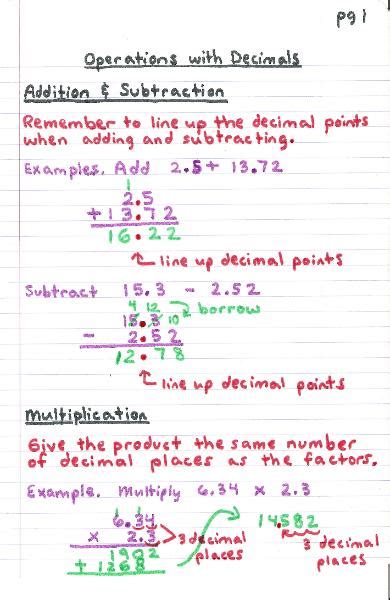 pg 1
Operations with Decimals
Addition & Subtraction
Remember to line up the decimal points
when adding and subtracting.
Examples. Add 2.5 + 13.72
1
2.5
+ 13.72
16.22
line up decimal points
Subtract 15.3 - 2.52
4 12 borrow
15.3 10
- 2.52
12.78
line up decimal points
Multiplication
Give the product the same number
of decimal places as the factors.
Example. Multiply 6.34 x 2.3
1 1
6.34 14.582
x 2.3 3 decimal places
3 decimal places
1902
+ 1268